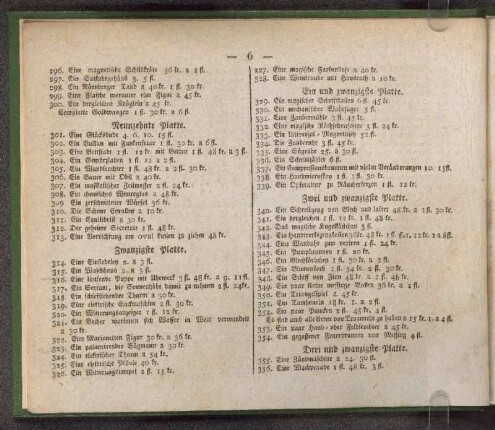 — 6 —
296. Eine magnetische Schildkröte 36 kr. a 1 fl.
297. Ein Sackuhrgehäus 3. 5 fl.
298. Ein Nürnberger Tand a 40 kr. 1 fl. 30 kr.
299. Eine Flasche worauf eine Figur a 45 kr.
300. Ein dergleichen Kröglein a 45 kr.
Complette Goldwaagen 1 fl. 30 kr. a 6 fl.
Neunzehnte Platte.
301. Eine Glücksbude 4. 6. 10. 15 fl.
302. Ein Ballon mit Funkenfeuer 1 fl. 30 kr. a 6 fl.
303. Eine Bettstatt 1 fl. 12 kr. mit Betten 1 fl. 48 kr. a 3 fl.
304. Ein Gewürzladen a 1 fl. 12 a 2 fl.
305. Ein Wandleuchter 1 fl. 48 kr. a 2 fl.
306. Ein Bauer mit Obst a 40 kr.
307. Ein musikalischer Zeitweiser 2 fl. 24 kr.
308. Ein chemisches Weinglas a 48 kr.
309. Ein gezeichneter Würfel 36 kr.
310. Die Stimme Corallen a 10 kr.
311. Ein Equilibrist a 30 kr.
312. Der geheime Secretaire 1 fl. 48 kr.
313. Eine Verrichtung um oval Linien zu ziehen 48 kr.
Zwanzigste Platte.
314. Eine Einsiedeley 2. a 3 fl.
315. Ein Waschhaus 2. a 3 fl.
316. Eine laufende Puppe mit Uhrwerk 7 fl. 48 kr. a 9. 11 fl.
317. Ein Sextant, die Sonnenhöhe damit zu nehmen 2 fl. 24 kr.
318. Ein schießstehender Thurm a 30 kr.
319. Eine elektrische Sackmaschine 2 fl. 30 kr.
320. Ein Witterungsanzeiger 1 fl. 12 kr.
321. Ein Becher worinnen sich Wasser in Wein verwandelt
a 30 kr.
322. Eine Marionetten Figur 30 kr. a 36 kr.
323. Ein balancirender Sägmann a 30 kr.
324. Ein elektrischer Thurm a 54 kr.
325. Eine elektrische Pistole 40 kr.
326. Ein Witterungstempel 2 fl. 15 kr.
327. Eine magische Farbendose a 40 kr.
328. Eine Weintraube mit Handroth a 10 kr.
Ein und zwanzigste Platte.
329. Ein magischer Schrifttasten 6 fl. 45 kr.
330. Ein mechanischer Wahrsager 3 fl.
331. Eine Zaubermühle 3 fl. 45 kr.
332. Eine magische Nachtlichtschirm 2 fl. 24 kr.
333. Ein universal-Magnetisch 52 fl.
334. Die Zauberuhr 3 fl. 45 kr.
335. Eine Sägeuhr 25. a 30 fl.
336. Ein Schreinpüster 6 fl.
337. Ein Compressionsbrunnen mit vielen Veränderungen 10. 15 fl.
338. Ein Handwindeisstag 1 fl. 30 kr.
339. Ein Opferaltar zu Räucherkerzen 1 fl. 12 kr.
Zwei und zwanzigste Platte.
340. Ein Schreibzeug von Blech und lasirt 48 kr. a 2 fl. 30 kr.
341. Ein dergleichen 1 fl. 12 kr. 1 fl. 48 kr.
342. Das magische Kugelkästchen 3 fl.
343. Ein Handwerkszeugkasten 36 kr. 48 kr. 1 fl. 1 fl. 12 kr. 2 a 8 fl.
344. Eine Wanduhr zum verieren 1 fl. 24 kr.
345. Ein Pumpbrunnen 1 fl. 20 kr.
346. Ein Gießlöffelchen 1 fl. 30 a 2 fl.
347. Ein Blumenkorb 1 fl. 54 kr. 2 fl. 30 kr.
348. Ein Schiff von Zinn 48 kr. 1 fl. a 1 fl. 48 kr.
349. Ein paar kleine messinge Becken 36 kr. a 2 fl.
350. Ein Triangelspiel 2 fl. 45 kr.
351. Ein Tambourin 18 kr. 1. a 2 fl.
352. Ein paar Paucken 2 fl. 45 kr. 4 fl.
Es sind auch alle Arten von Trommeln zu haben a 15 kr. 1. a 4 fl.
353. Ein paar Hand- oder Fußleuchter a 45 kr.
354. Ein gegossener Feuerbrunnen von Messing 4 fl.
Drei und zwanzigste Platte.
355. Eine Zündmaschine a 24. 30 fl.
356. Eine Wachparade 1 fl. 48 kr. 3 fl.